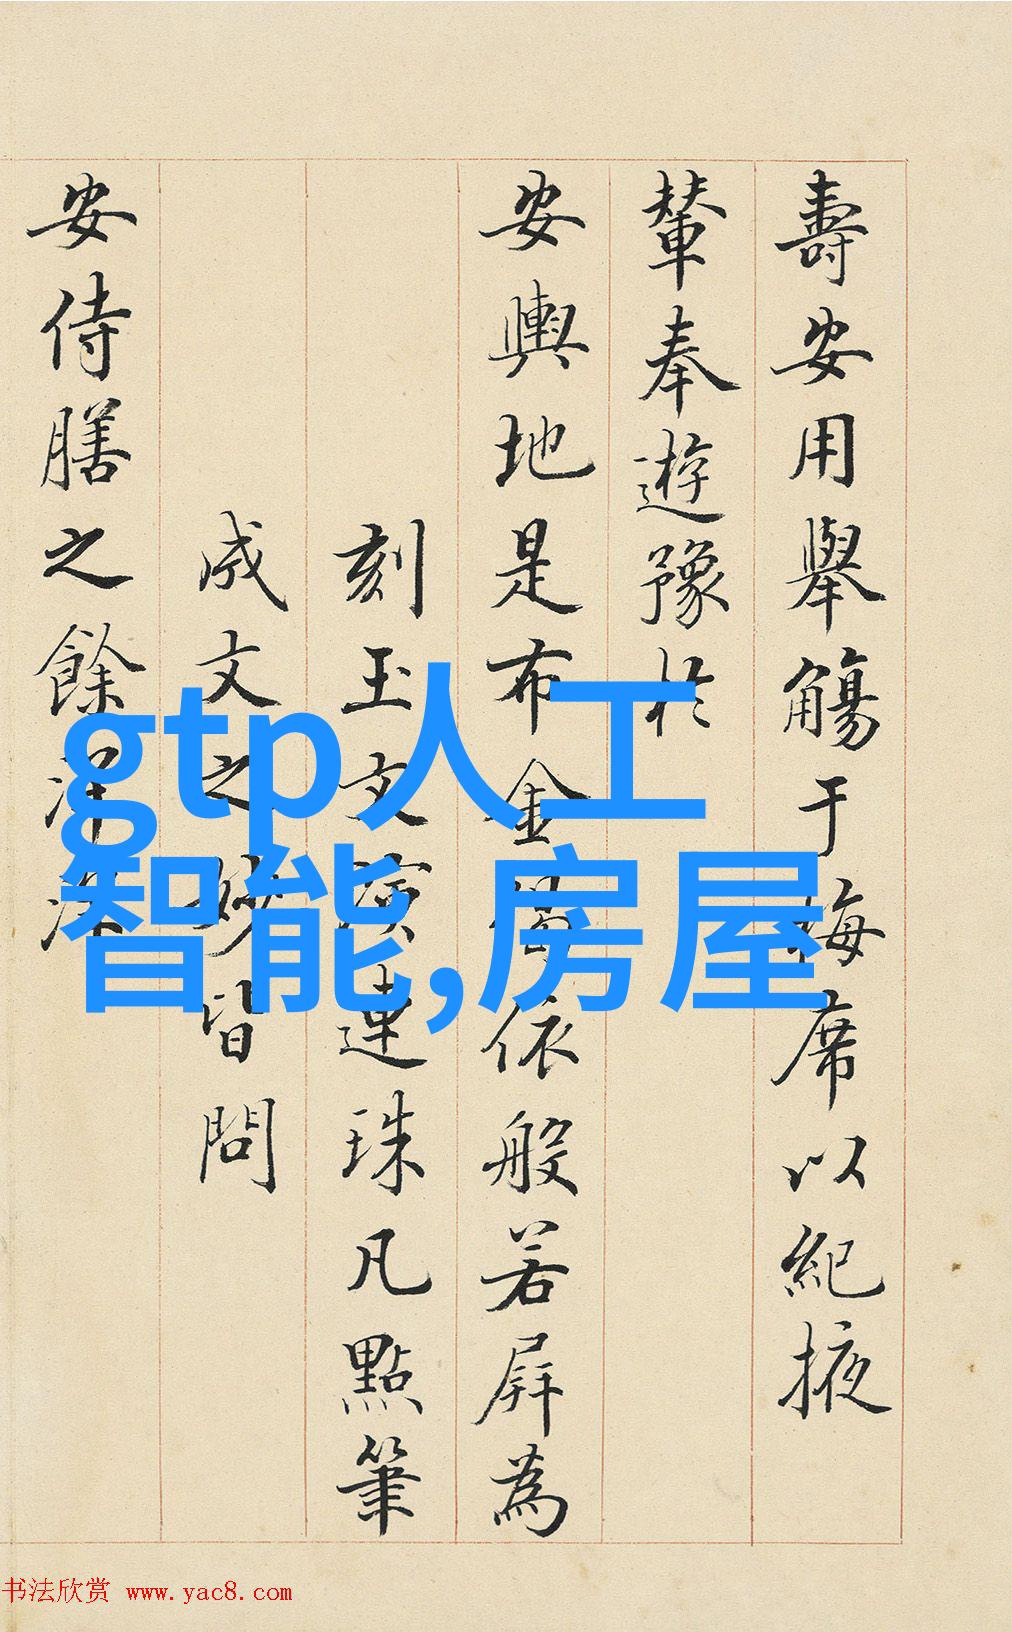 壽安用舉觴于梅席以紀掖
輦奉遊豫於
安輿地是布金
依般若屏為
刻玉文
連珠凡點筆
成文之
皆問
安侍膳之餘
gtp人工
智能,房屋
书法欣赏 www.yac8.com